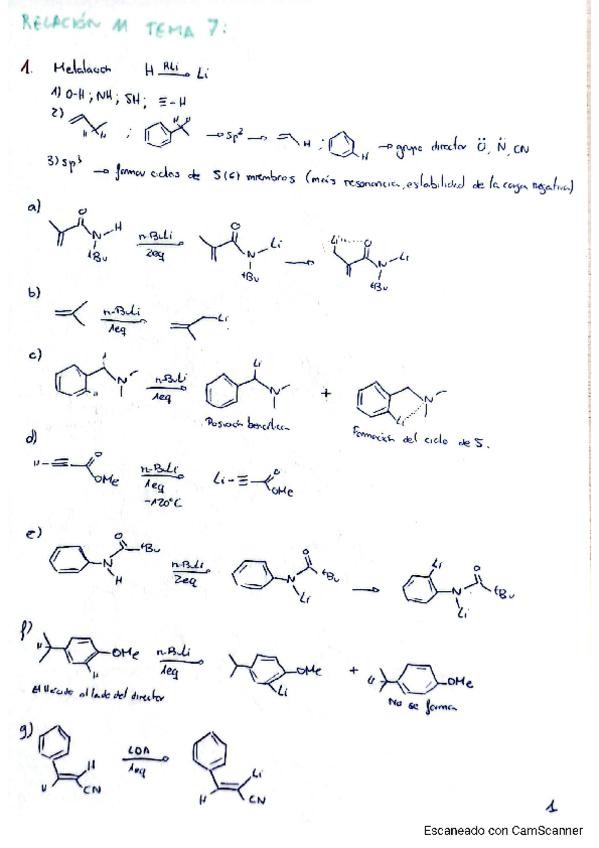 RELACIÓN 11 TEMA 7:
1. Metalación H RLi Li
1) O-H ; NH ; SH ; ≡-H
2) H H ; H → sp² → H ; H → grupo director Ö, N̈, CN
3) sp³ → formar ciclos de 5(6) miembros (más resonancia, estabilidad de la carga negativa)
a)
O N H tBu n-BuLi 2eq O N Li tBu Li O N Li tBu
b)
n-BuLi 1eq Li
c)
N n-BuLi 1eq Li N + N Li
Posición bencílica
Formación del ciclo de 5.
d)
H ≡ O OMe n-BuLi 1eq -120°C Li-≡ O OMe
e)
N H O tBu n-BuLi 2eq N Li O tBu Li N Li O tBu
f)
H OMe H n-BuLi 1eq OMe Li + OMe
El H ácido al lado del director
No se forma
g)
H H CN LDA 1eq H Li CN
1
Escaneado con CamScanner